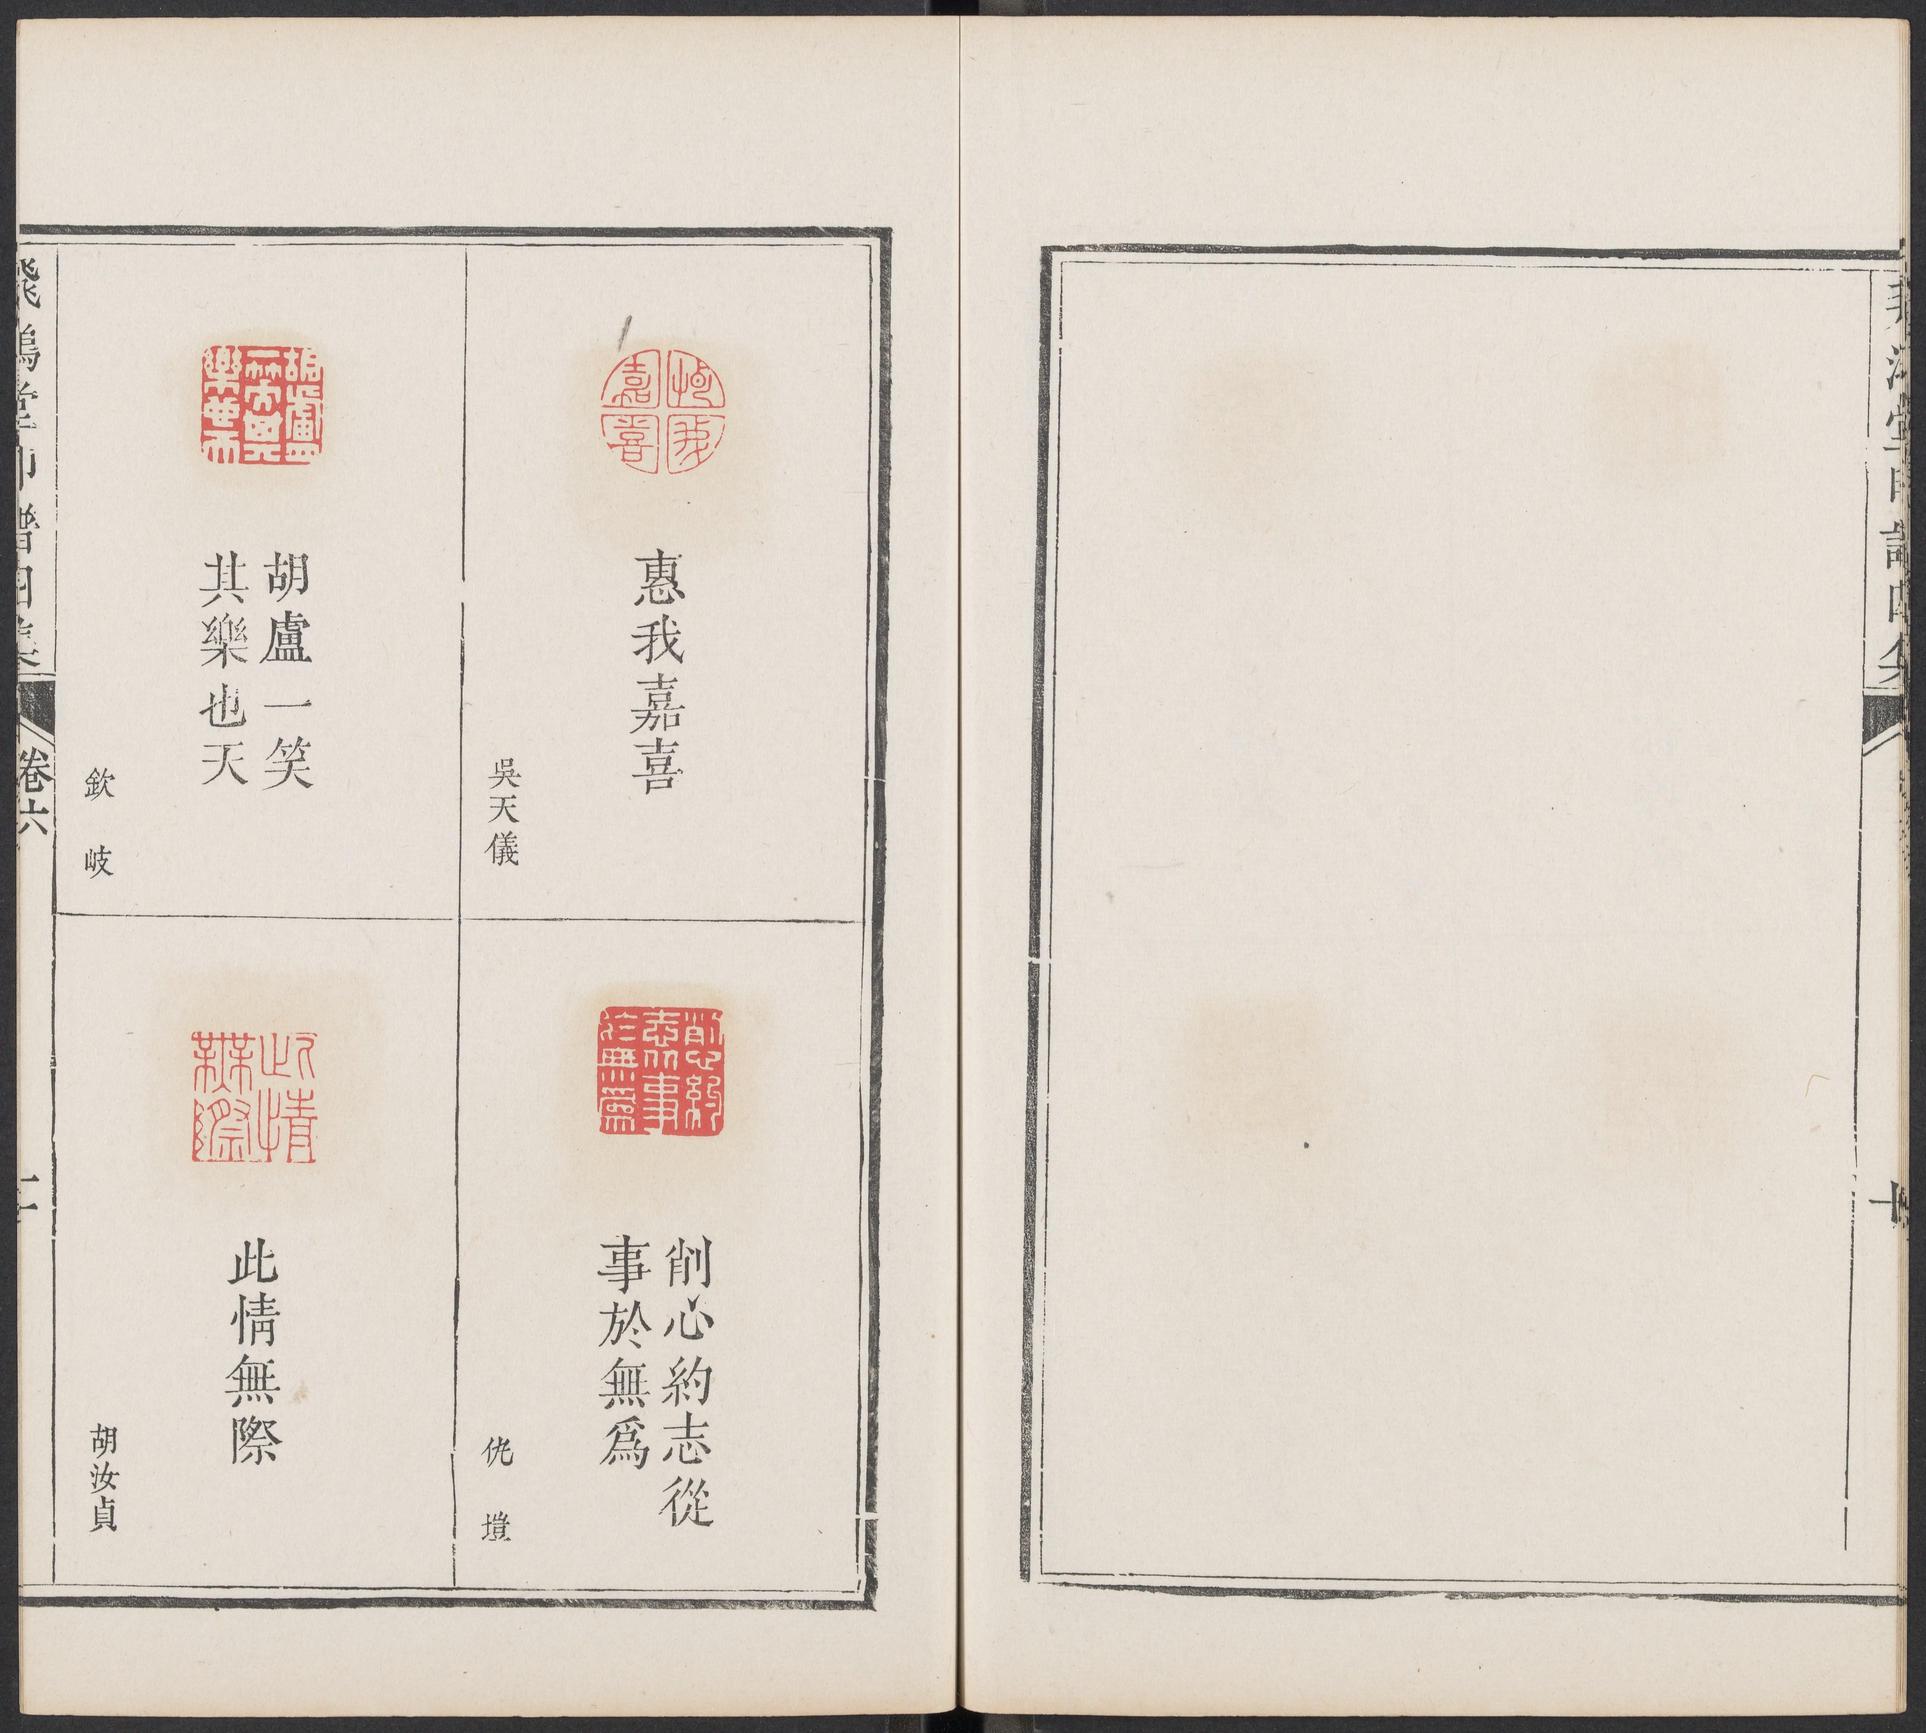 惠我嘉喜
吳天儀
削心約志從
事於無爲
仇塏
胡盧一笑
其樂也天
欽岐
此情無際
胡汝貞
飛鴻堂印譜四集
卷六